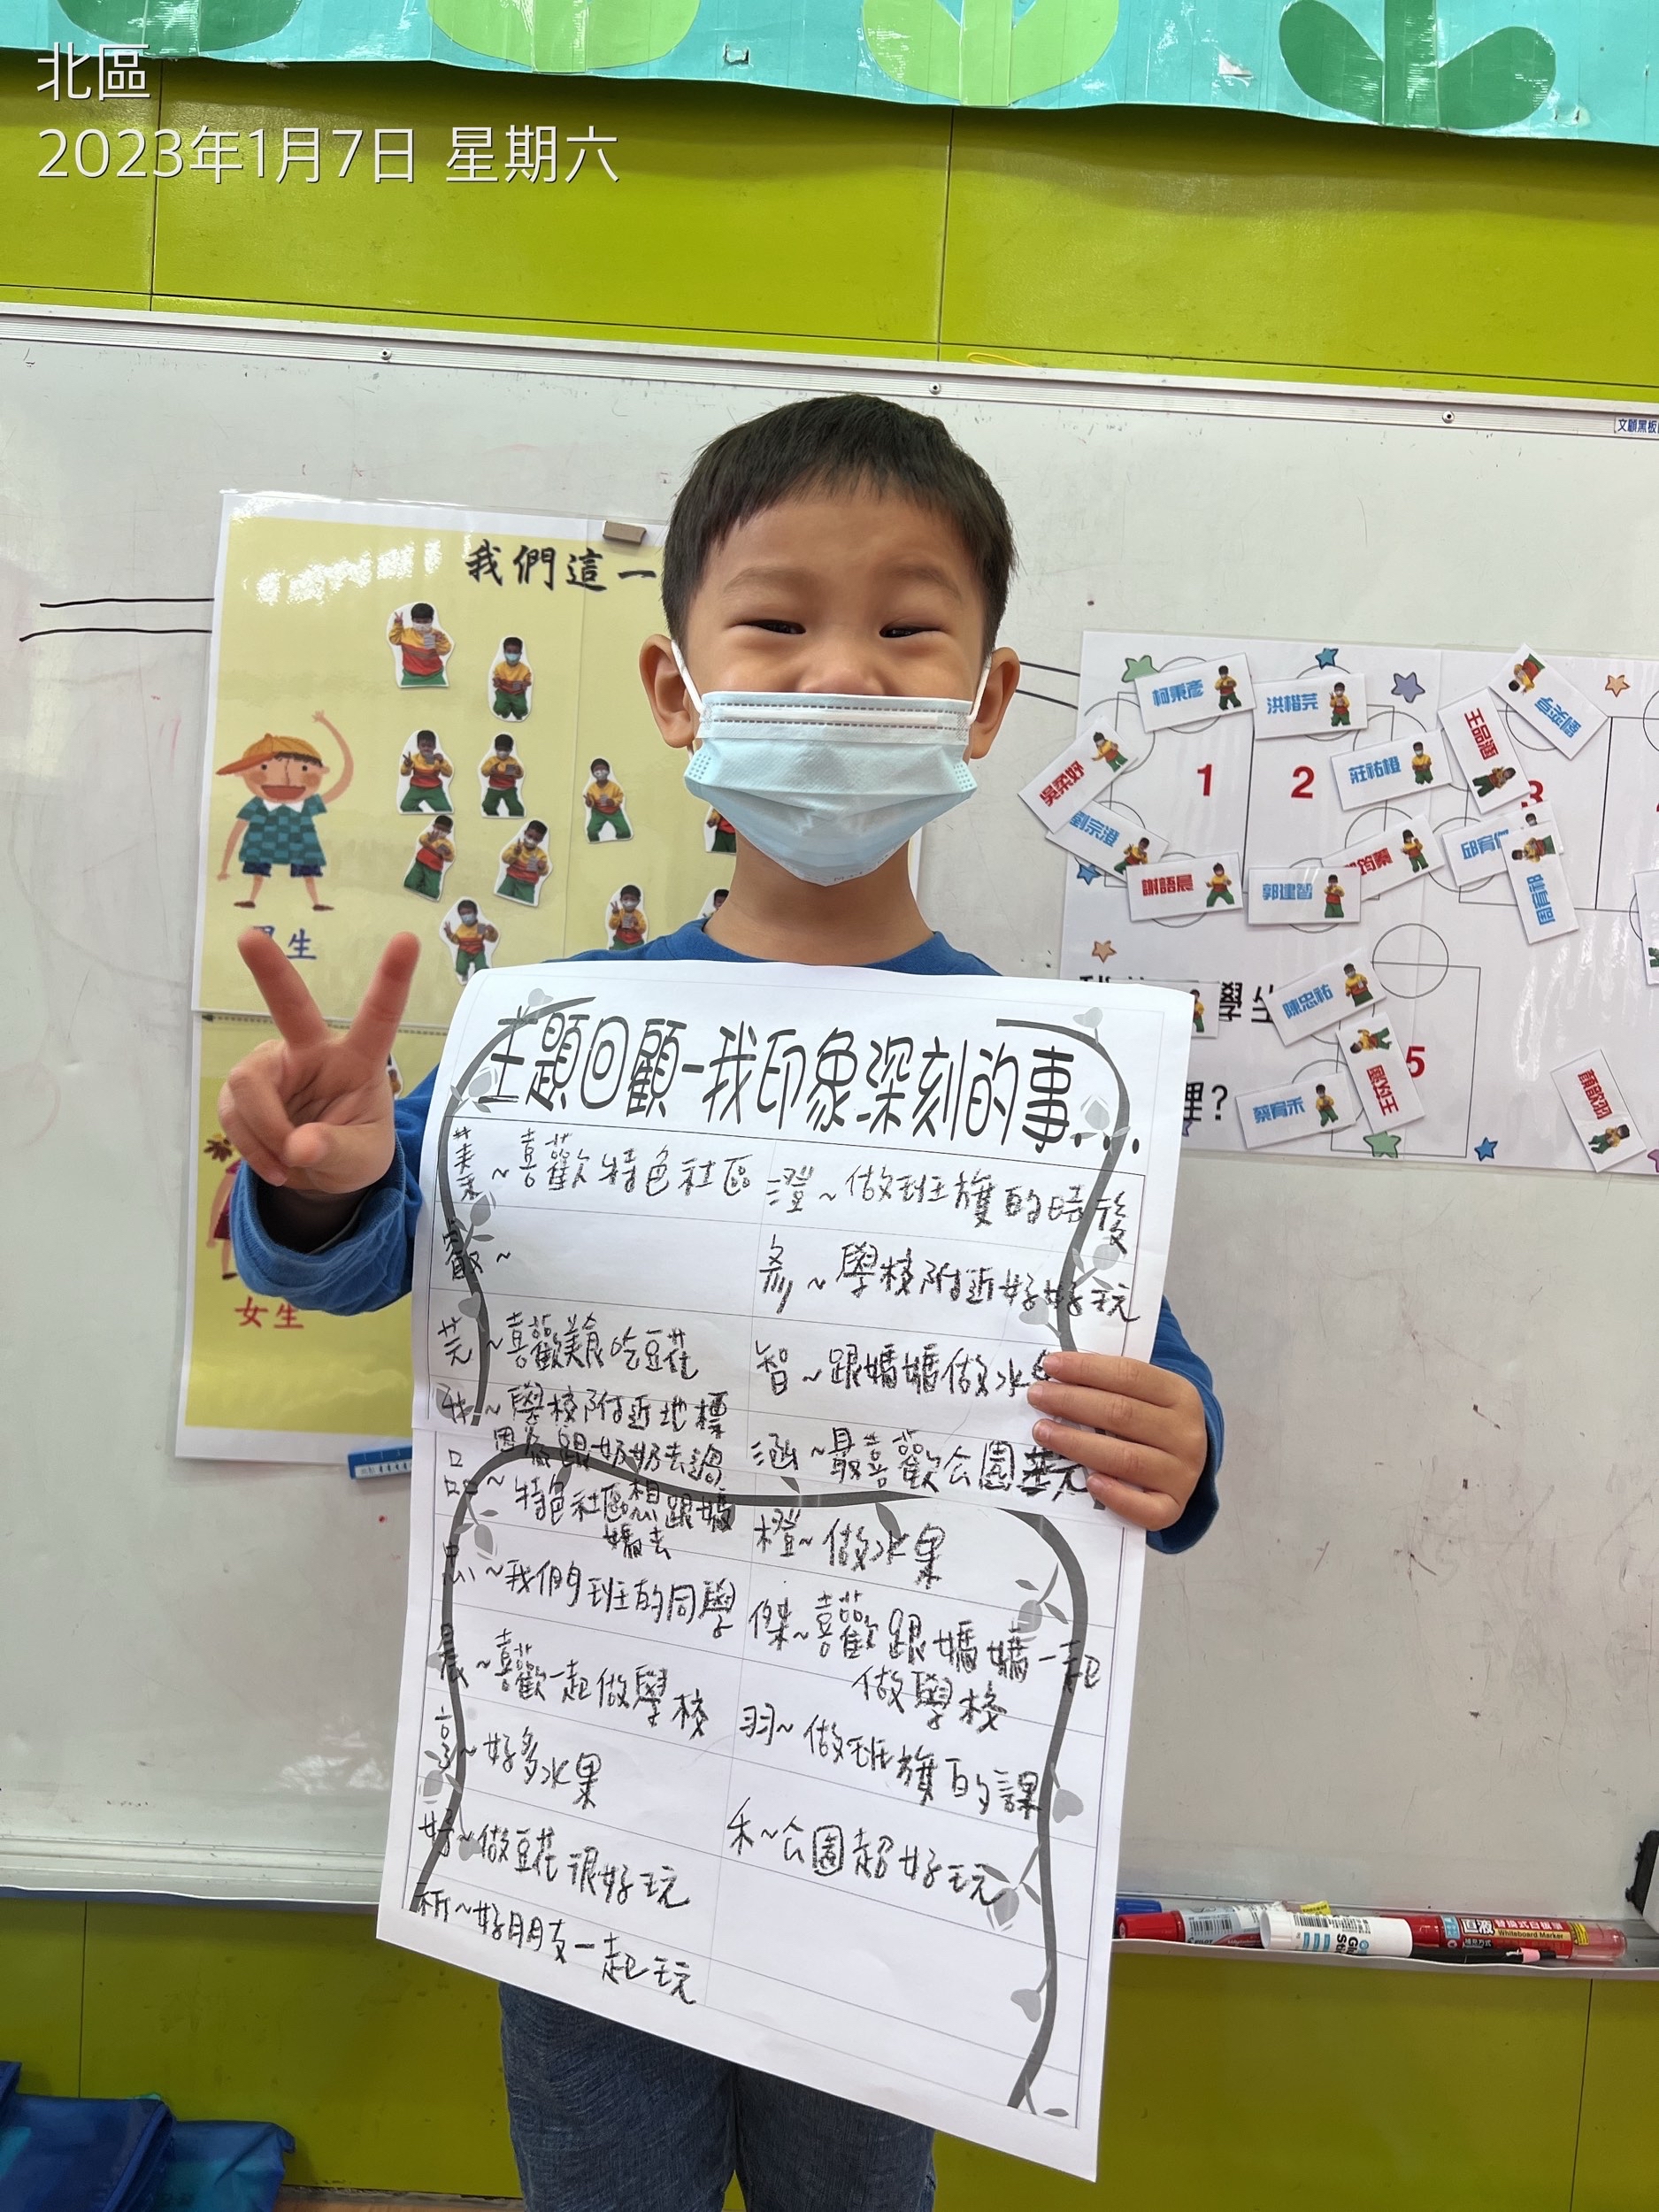 北區
2023年1月7日 星期六
文顧黑板
我們這一
男生
女生
柯秉彥
洪楷芫
王品涵
吳柔妤
莊祐橙
劉宗澄
1
2
3
謝語晨
郭建智
周宥和
學生
陳忠祐
5
裡?
蔡宥禾
主題回顧-我印象深刻的事...
蓁~喜歡特色社區
睿~
芫~喜歡美食吃豆花
~學校附近地標
因為跟奶奶去過
品~特色社區想跟媽
媽去
忠~我們班的同學
晨~喜歡一起做學校
亭~好多水果
妤~做豆花很好玩
祈~好朋友一起玩
澄~做班旗的時後
彥~學校附近好好玩
智~跟媽媽做水
涵~最喜歡公園
橙~做水果
傑~喜歡跟媽媽一起
做學校
羽~做班旗的課
禾~公園超好玩
Whiteboard Marker